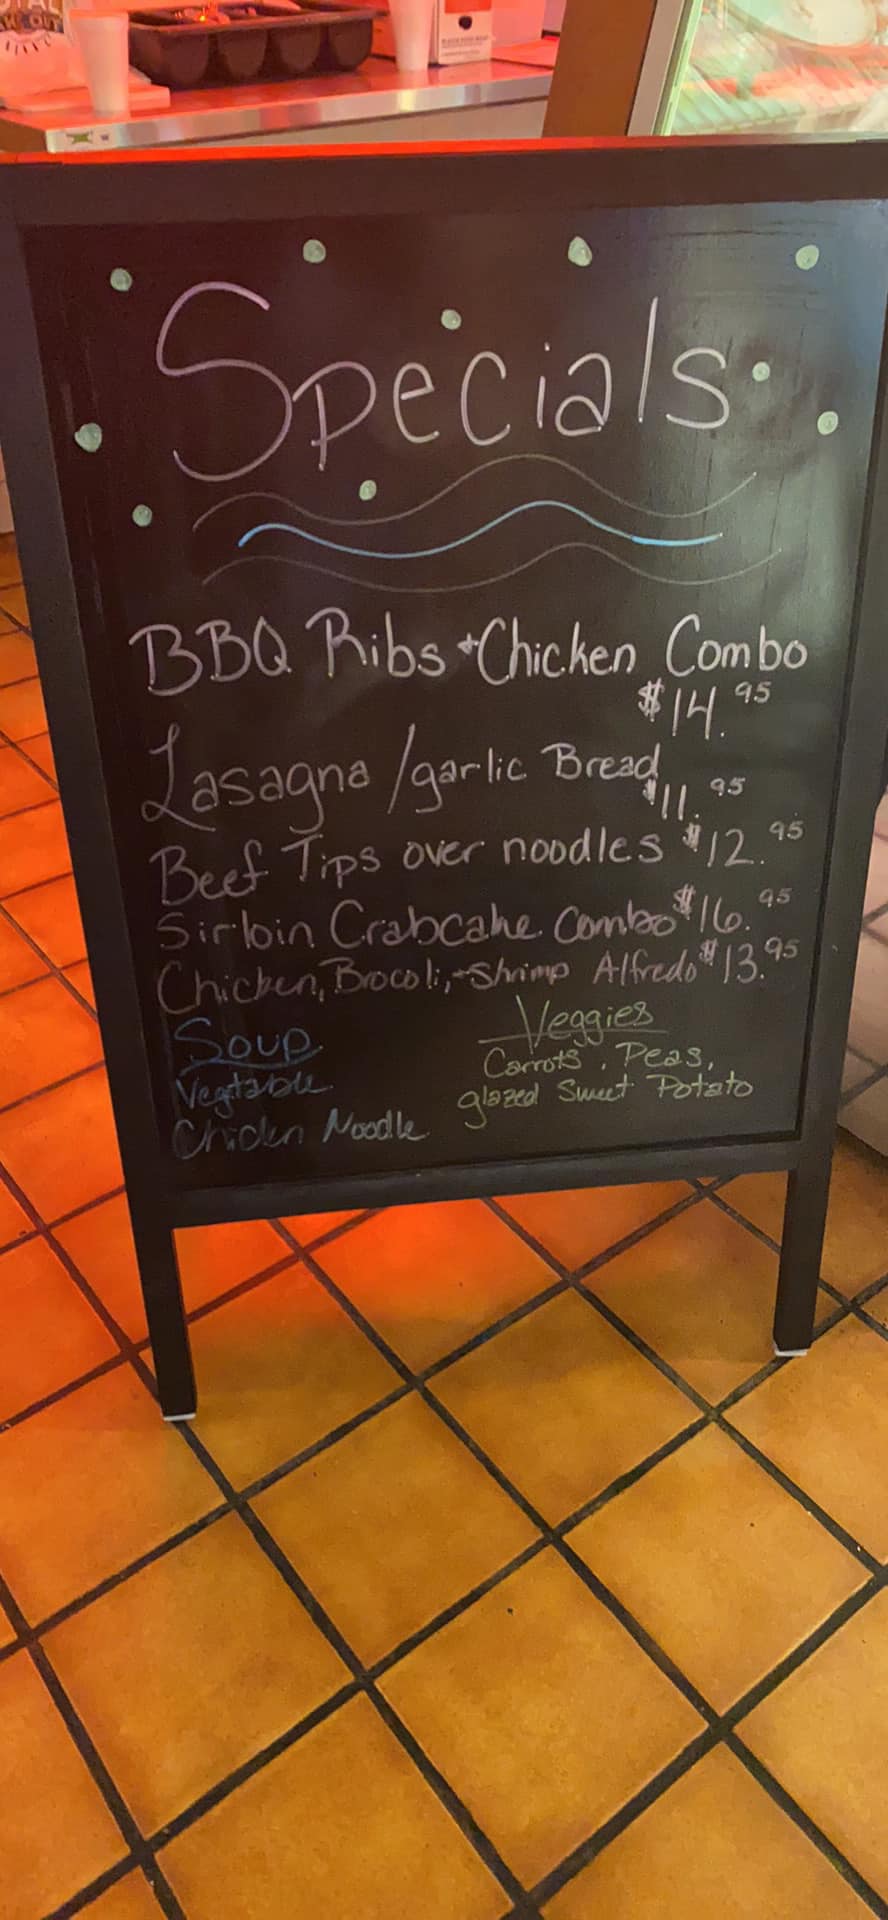 Specials
BBQ Ribs + Chicken Combo
$14.95
Lasagna / garlic Bread
$11.95
Beef Tips over noodles $12.95
Sirloin Crabcake Combo $16.95
Chicken, Brocoli, + Shrimp Alfredo $13.95
Soup
Vegtable
Chicken Noodle
Veggies
Carrots, Peas,
glazed Sweet Potato